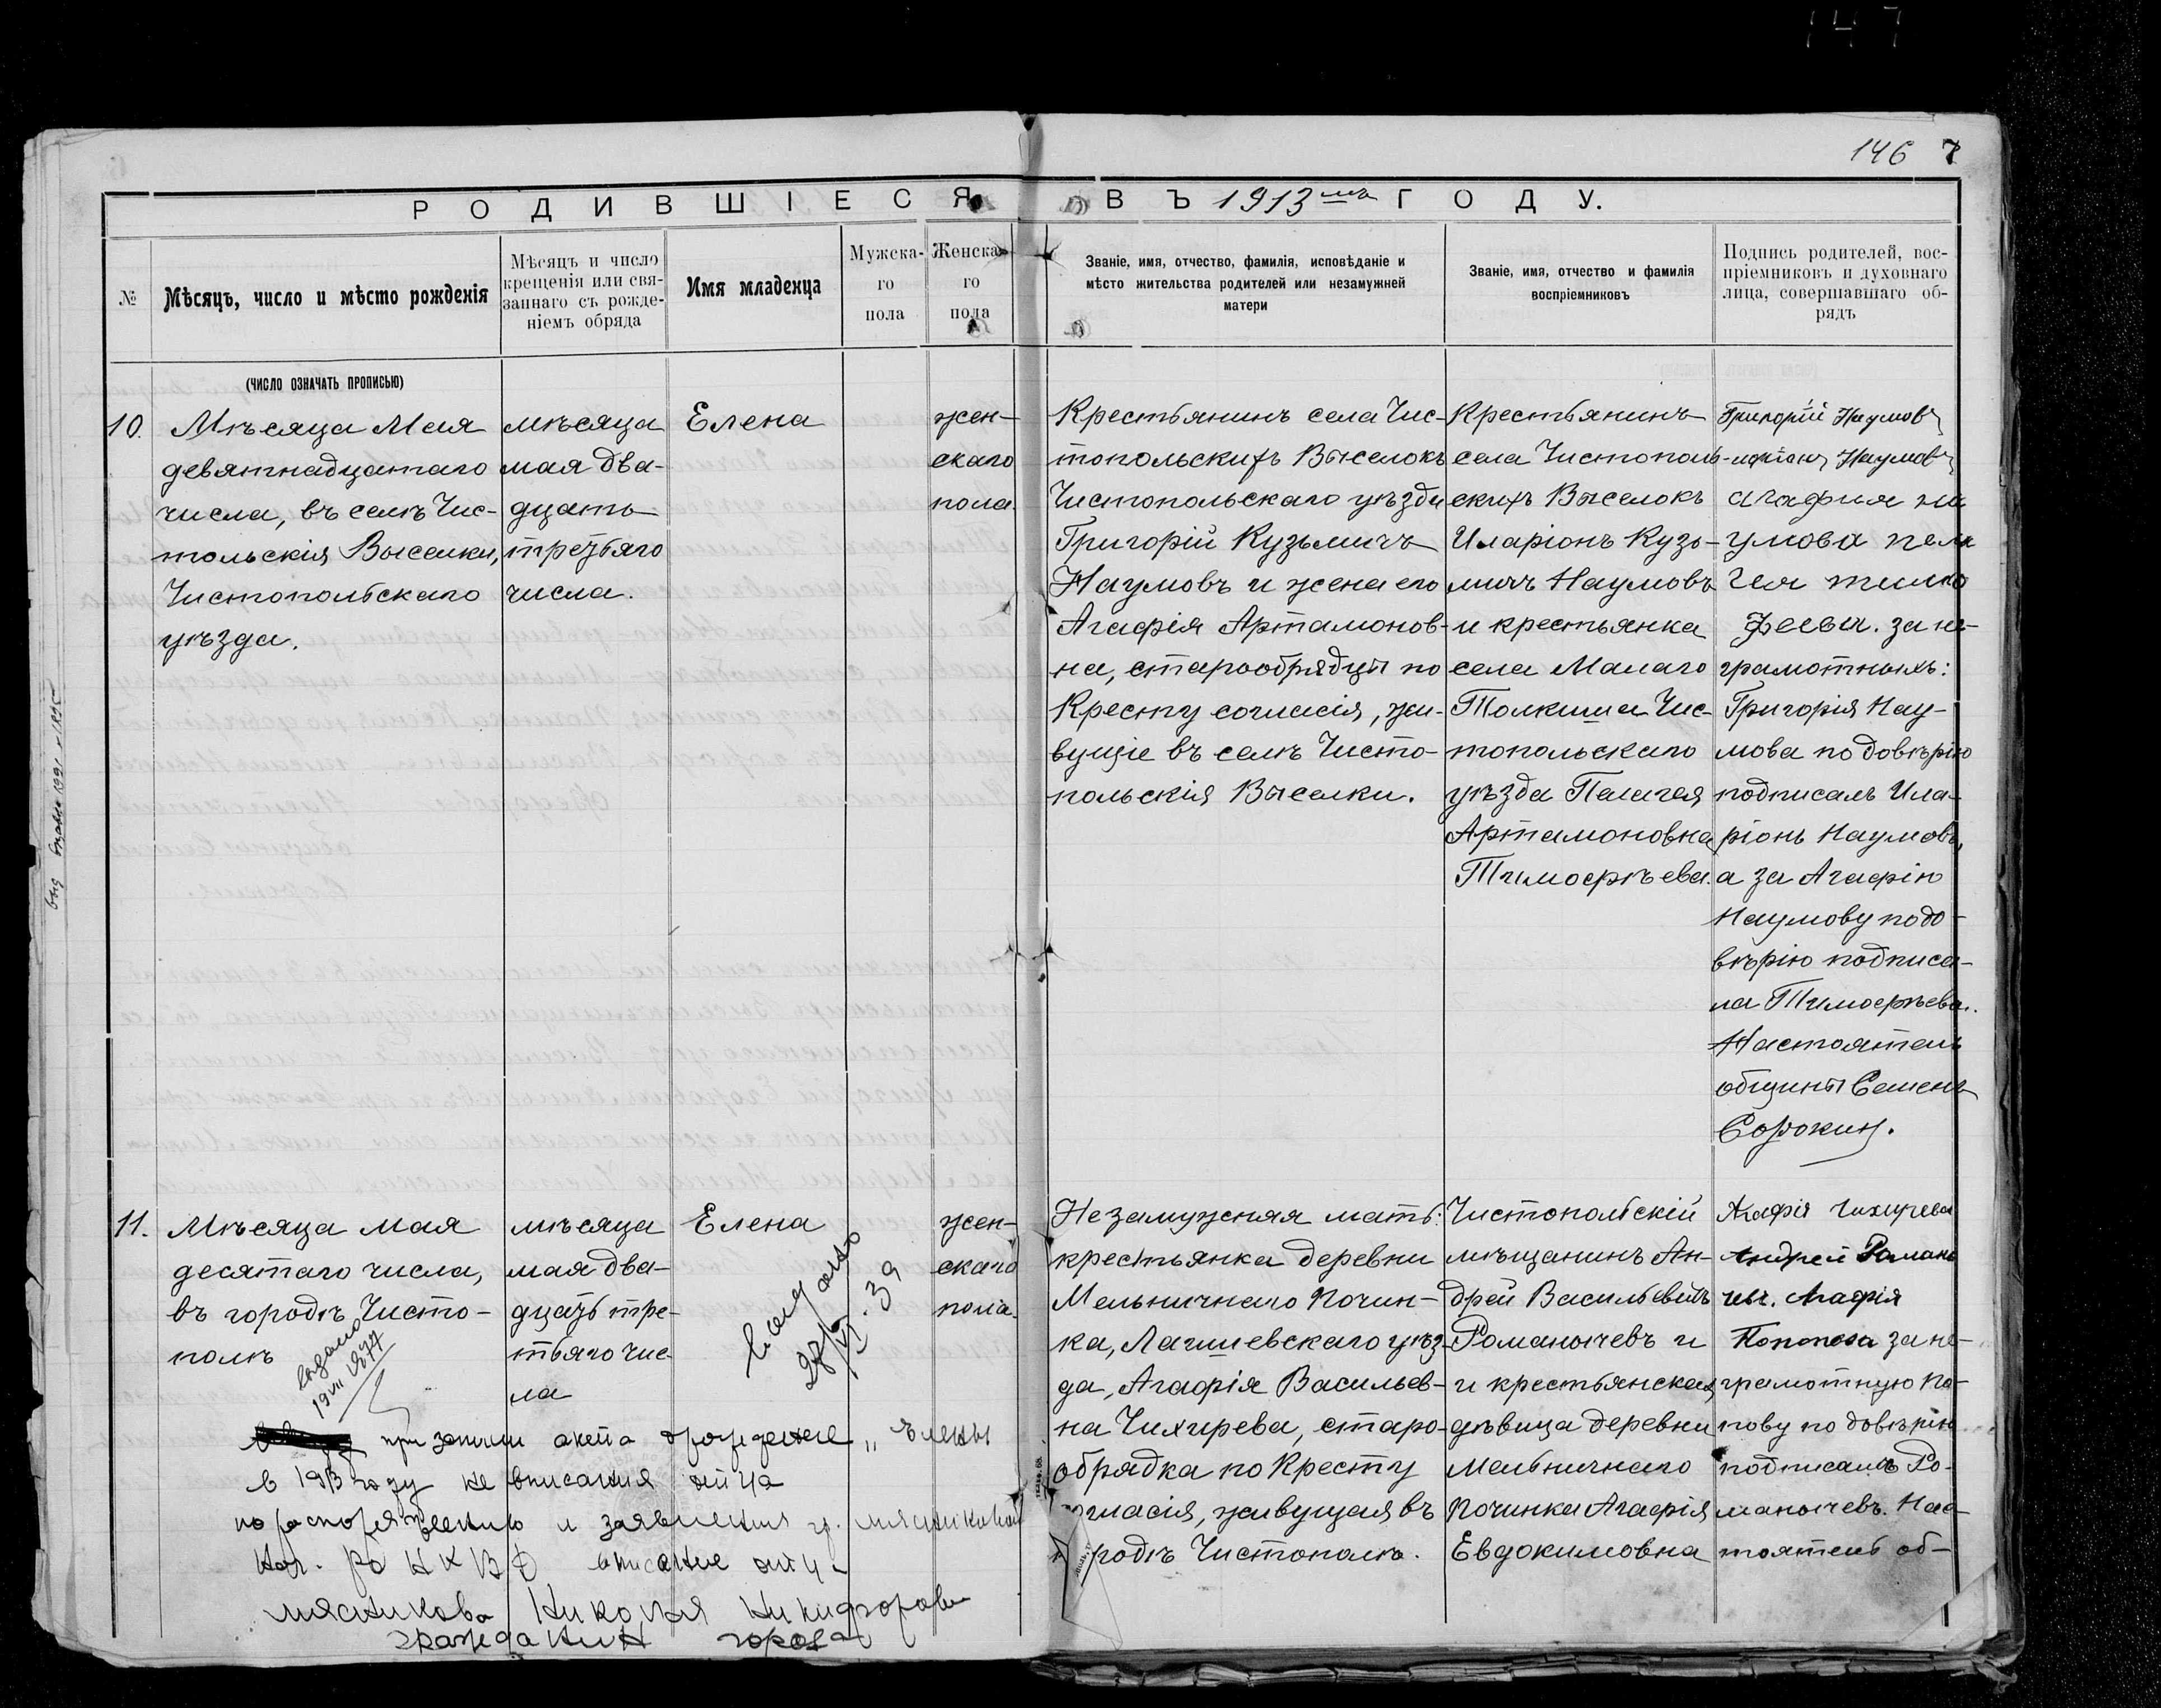 147
146 7
РОДИВШІЕСЯ ВЪ 1913 мъ ГОДУ.
№
Мѣсяцъ, число и мѣсто рожденія
Мѣсяцъ и число
крещенія или свя-
заннаго съ рожде-
ніемъ обряда
Имя младенца
Мужска-
го
пола
Женска-
го
пола
Званіе, имя, отчество, фамилія, исповѣданіе и
мѣсто жительства родителей или незамужней
матери
Званіе, имя, отчество и фамилія
воспріемниковъ
Подпись родителей, вос-
пріемниковъ и духовнаго
лица, совершавшаго об-
рядъ
(ЧИСЛО ОЗНАЧАТЬ ПРОПИСЬЮ)
10.
Мѣсяца Мая
девятнадцатаго
числа, въ селѣ Чис-
тольскія Выселки,
Чистопольскаго
уѣзда.
мѣсяца
мая два-
дцать
третьяго
числа.
Елена
жен-
скаго
пола.
Крестьянинъ села Чис-
топольскихъ Выселокъ
Чистопольскаго уѣзда
Григорій Кузьмичъ
Наумовъ и жена его
Агафія Артамонов-
на, старообрядцы по
Кресту согласія, жи-
вущіе въ селѣ Чисто-
польскія Выселки.
Крестьянинъ
села Чистополь-
скихъ Выселокъ
Иларіонъ Кузь-
мичъ Наумовъ
и крестьянка
села Малаго
Толкиша Чис-
топольскаго
уѣзда Пелагея
Артамоновна
Тимофѣева.
Григорій Наумовъ
Наумовъ
агафия на
умова пела
гея тимо
феева. за не-
грамотныхъ:
Григорія Нау-
мова по довѣрію
подписалъ Ила-
ріонъ Наумовъ,
а за Агафію
Наумову по до-
вѣрію подписа-
ла Тимофѣева.
Настоятель
общины Семенъ
Сорокин.
11.
Мѣсяца мая
десятаго числа,
въ городѣ Чисто-
полѣ
мѣсяца
мая два-
дцать тре-
тьяго чис-
ла
Елена
жен-
скаго
пола.
Незамужняя мать:
крестьянка деревни
Мельничнаго Почин-
ка, Лаишевскаго уѣз-
да, Агафія Васильев-
на Чихирева, старо-
обрядка по Кресту
согласія, живущая въ
городѣ Чистополѣ.
Чистопольскій
мѣщанинъ Ан-
дрей Васильевичъ
Романычевъ и
и крестьянская
дѣвица деревни
Мельничнаго
Починка Агафія
Евдокимовна
Агафія Чихирева
Андрей Романы
чев. Агафія
Попова за не-
грамотную По-
пову по довѣрію
подписалъ Ро-
манычевъ. Нас-
тоятель об-
выдано
27/VI.39
выдано
19 VII 1977
при записи акта о рождение „Елены
в 1913 году не вписания отца
по распоряжению и заявления гр. Мясниковой
нач. РО НКВД вписание отц-
Мясникова Николая Никифоров
гражданин города